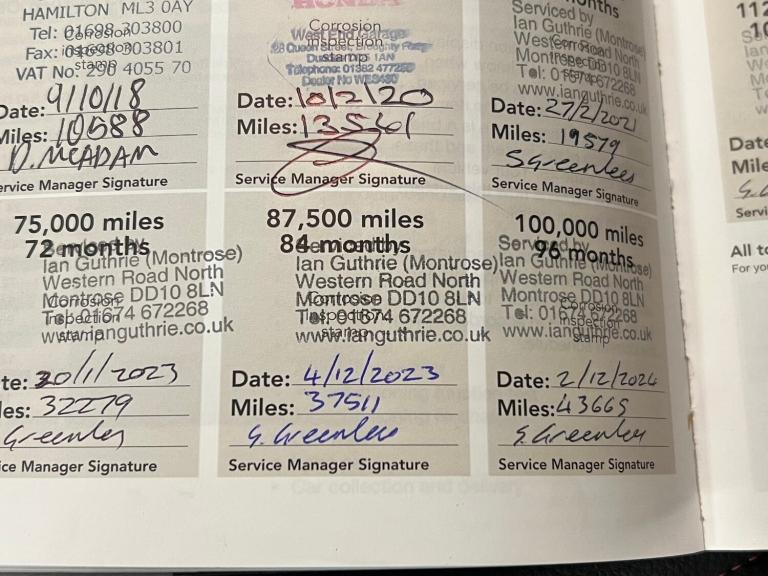 HAMILTON ML3 0AY
Tel: 01698 303800
Fax: 01698 303801
VAT No: 296 4055 70
Corrosion
inspection
stamp
Date: 9/10/18
Miles: 10588
D. McADAM
ervice Manager Signature
HONDA
West End Garage
Corrosion
inspection
stamp
Telephone: 01382 477250
Date: 10/2/20
Miles: 13561
Service Manager Signature
onths
Serviced by
Ian Guthrie (Montrose)
Western Road North
Montrose DD10 8LN
Tel: 01674 672268
www.ianguthrie.co.uk
Corrosion
inspection
stamp
Date: 27/2/2021
Miles: 19579
S Greenlees
Service Manager Signature
112
Date
Mile
Servi
75,000 miles
72 months
Serviced by
Ian Guthrie (Montrose)
Western Road North
Montrose DD10 8LN
Tel: 01674 672268
www.ianguthrie.co.uk
Corrosion
inspection
stamp
te: 20/1/2023
les: 32279
Greenlees
ice Manager Signature
87,500 miles
84 months
Serviced by
Ian Guthrie (Montrose)
Western Road North
Montrose DD10 8LN
Tel: 01674 672268
www.ianguthrie.co.uk
Corrosion
inspection
stamp
Date: 4/12/2023
Miles: 37511
S. Greenlees
Service Manager Signature
100,000 miles
96 months
Serviced by
Ian Guthrie (Montrose)
Western Road North
Montrose DD10 8LN
Tel: 01674 672268
www.ianguthrie.co.uk
Corrosion
inspection
stamp
Date: 2/12/2024
Miles: 43665
S. Greenlees
Service Manager Signature
All to
For you
Car collection and delivery